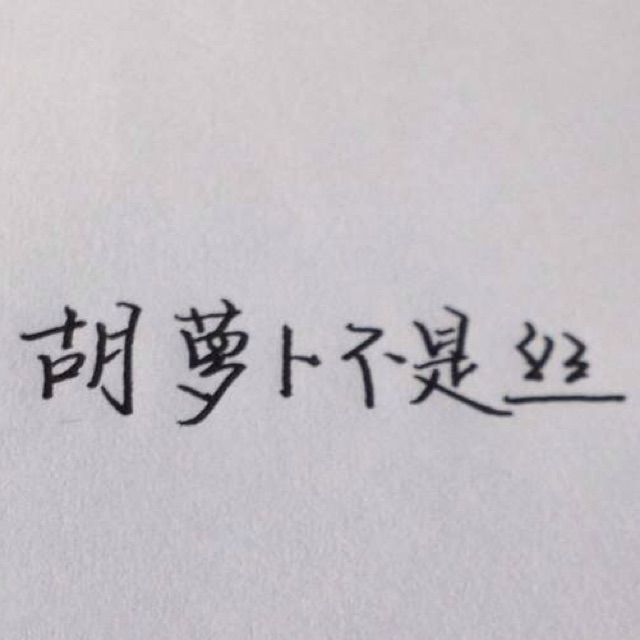 胡萝卜不是丝